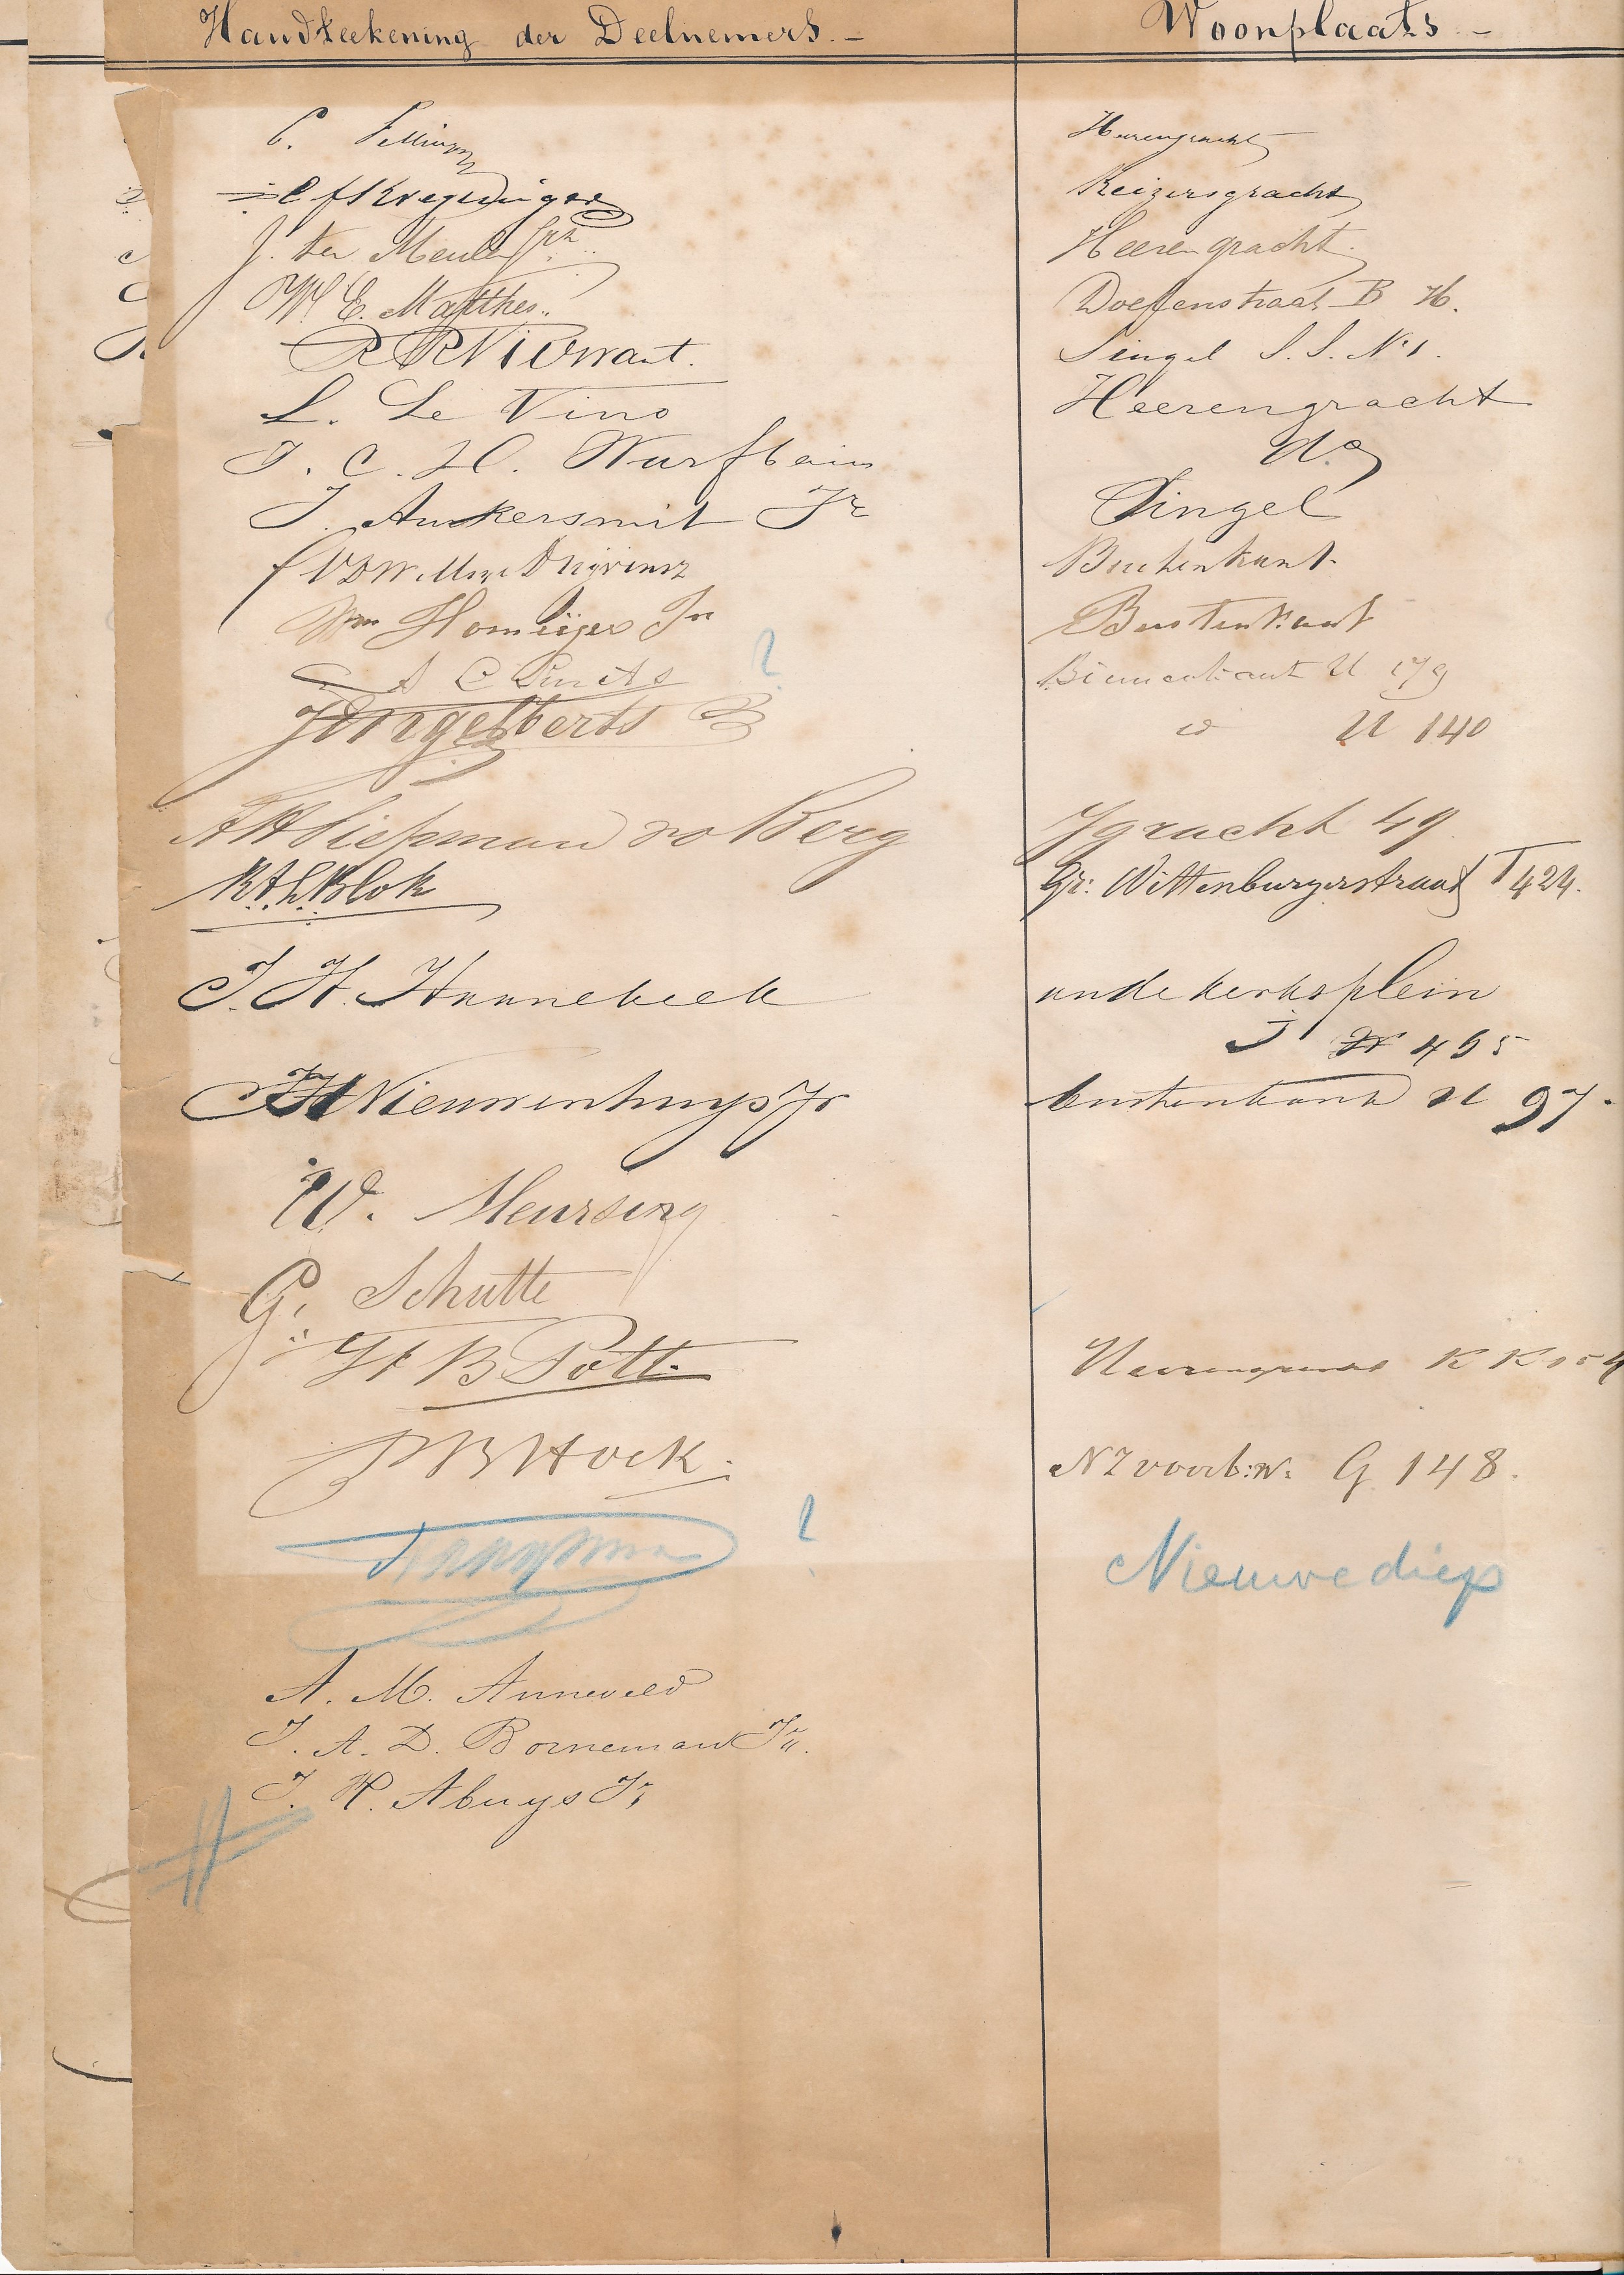 Handteekening der Deelnemers. - Woonplaats. -
C. Heerengracht
Keizersgracht
J. ter Meulen Heerengracht.
W. E. Matthes. Doelenstraat B H.
Singel S. S. No 1.
L. Le Vino Heerengracht
J. C. H. Wurfbain do
J. Ankersmit Jr Singel
Buitenkant.
Wm Homeijer Jr Buitenkant
A C Smits ? Binnenkant U 179
Engelberts id U 140
A H Siepman vd Berg Ygracht 49
R.A.L. Blok Gr: Wittenburgerstraat T 424.
J. H. Hannebeek oude kerksplein
J N 465
Nieuwenhuys Jr buitenkant U 97.
W. Meursing
G. Schutte
H B Pott. KK
Hock. NZ voorb:w: G 148.
? Nieuwediep
A. M. Anneveld
J. A. D. Borneman Jr.
J. H. Abuys Jr